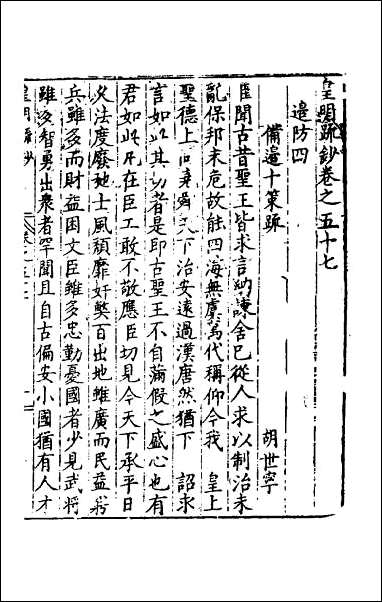 皇明疏鈔卷之五十七
邊防四
備邊十策疏
胡世寧
臣聞古昔聖王皆求言納諫舍已從人求以制治未
亂保邦未危故能四海無虞萬代稱仰今我 皇上
聖德上同堯舜天下治安遠過漢唐然猶下 詔求
言如此其切者是即古聖王不自滿假之盛心也有
君如此凡在臣工敢不敬應臣切見今天下承平日
久法度廢弛士風頹靡奸獘百出地雖廣而民益窮
兵雖多而財益困文臣雖多忠勤憂國者少見武將
雖多智勇出衆者罕聞且自古偏安小國猶有人才
皇明疏鈔